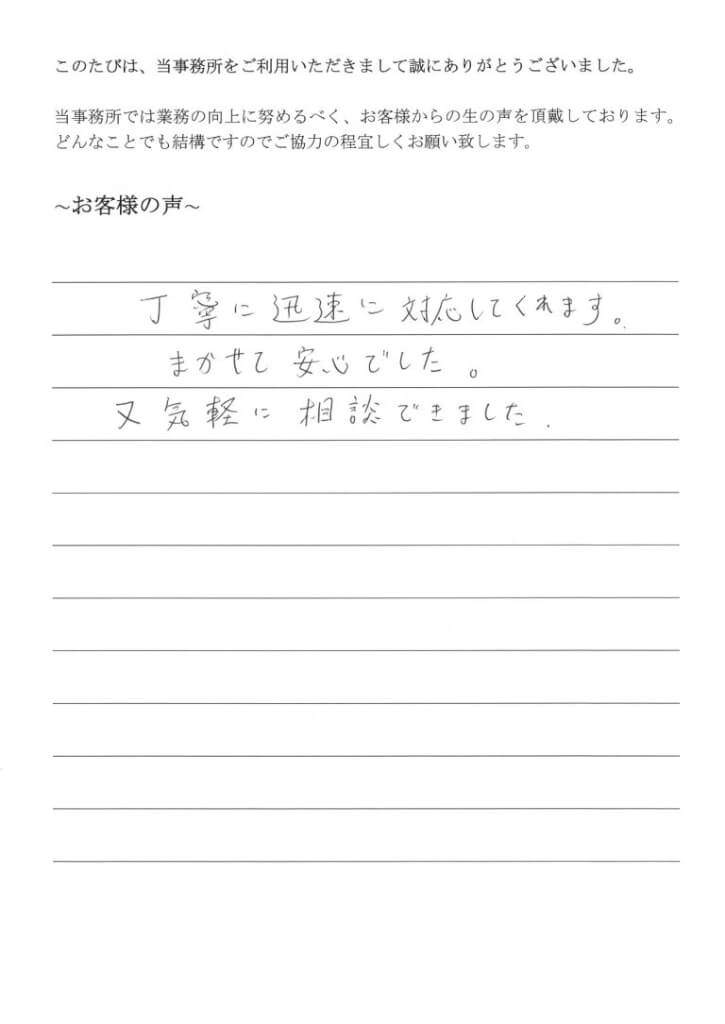 このたびは、当事務所をご利用いただきまして誠にありがとうございました。
当事務所では業務の向上に努めるべく、お客様からの生の声を頂戴しております。
どんなことでも結構ですのでご協力の程宜しくお願い致します。
~お客様の声~
丁寧に迅速に対応してくれます。
まかせて安心でした。
又気軽に相談できました.